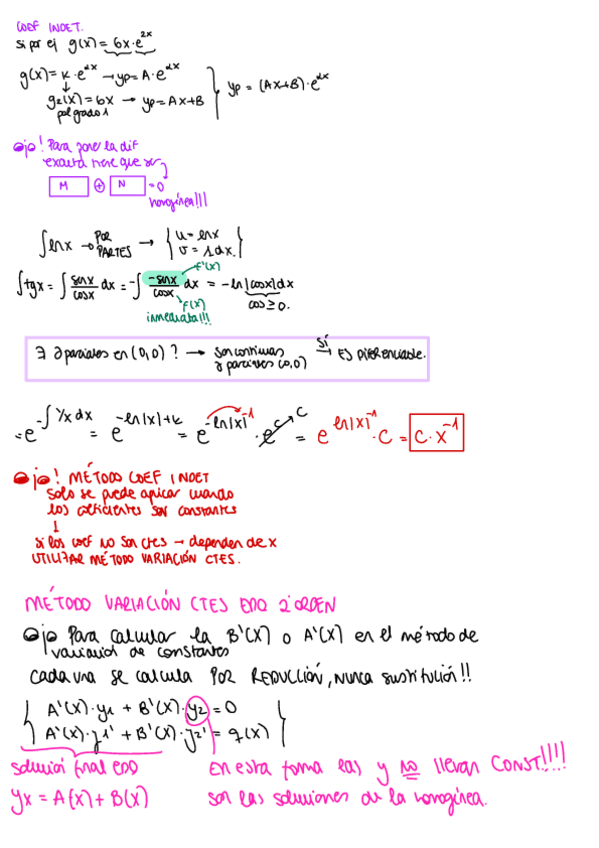 COEF INDET.
si por ej g(x) = 6x·e^2x
g(x) = k·e^αx → yp = A·e^αx
g2(x) = 6x → yp = Ax+B
pol grado 1
yp = (Ax+B)·e^αx
Ojo! Para poner la dif
exacta tiene que ser
M + N = 0
homogénea!!!
∫lnx → POR PARTES → { u = lnx
v = 1dx. }
∫tgx = ∫ sinx/cosx dx = -∫ -sinx/cosx dx = -ln|cosx|dx
f'(x)
f(x)
cos ≥ 0.
inmediata!!!
∃ ∂parciales en (0,0)? → son continuas Sí→ ES DIFERENCIABLE.
∂ parciales (0,0)
= e^-∫1/x dx = e^-ln|x|+k = e^-ln|x|^-1 · e^c = e^ln|x|^-1 · C = C·x^-1
C
Ojo! MÉTODO COEF INDET
solo se puede aplicar cuando
los coeficientes son constantes
↓
si los coef no son ctes → dependen de x
UTILIZAR MÉTODO VARIACIÓN CTES.
MÉTODO VARIACIÓN CTES EDO 2ºORDEN
Ojo Para calcular la B'(x) o A'(x) en el método de
variación de constantes
cada una se calcula POR REDUCCIÓN, NUNCA SUSTITUCIÓN!!
A'(x)·y1 + B'(x)·y2 = 0
A'(x)·y1' + B'(x)·y2' = g(x)
solución final EDO
yx = A(x) + B(x)
En esta forma las y no llevan CONST!!!!
son las soluciones de la homogénea.